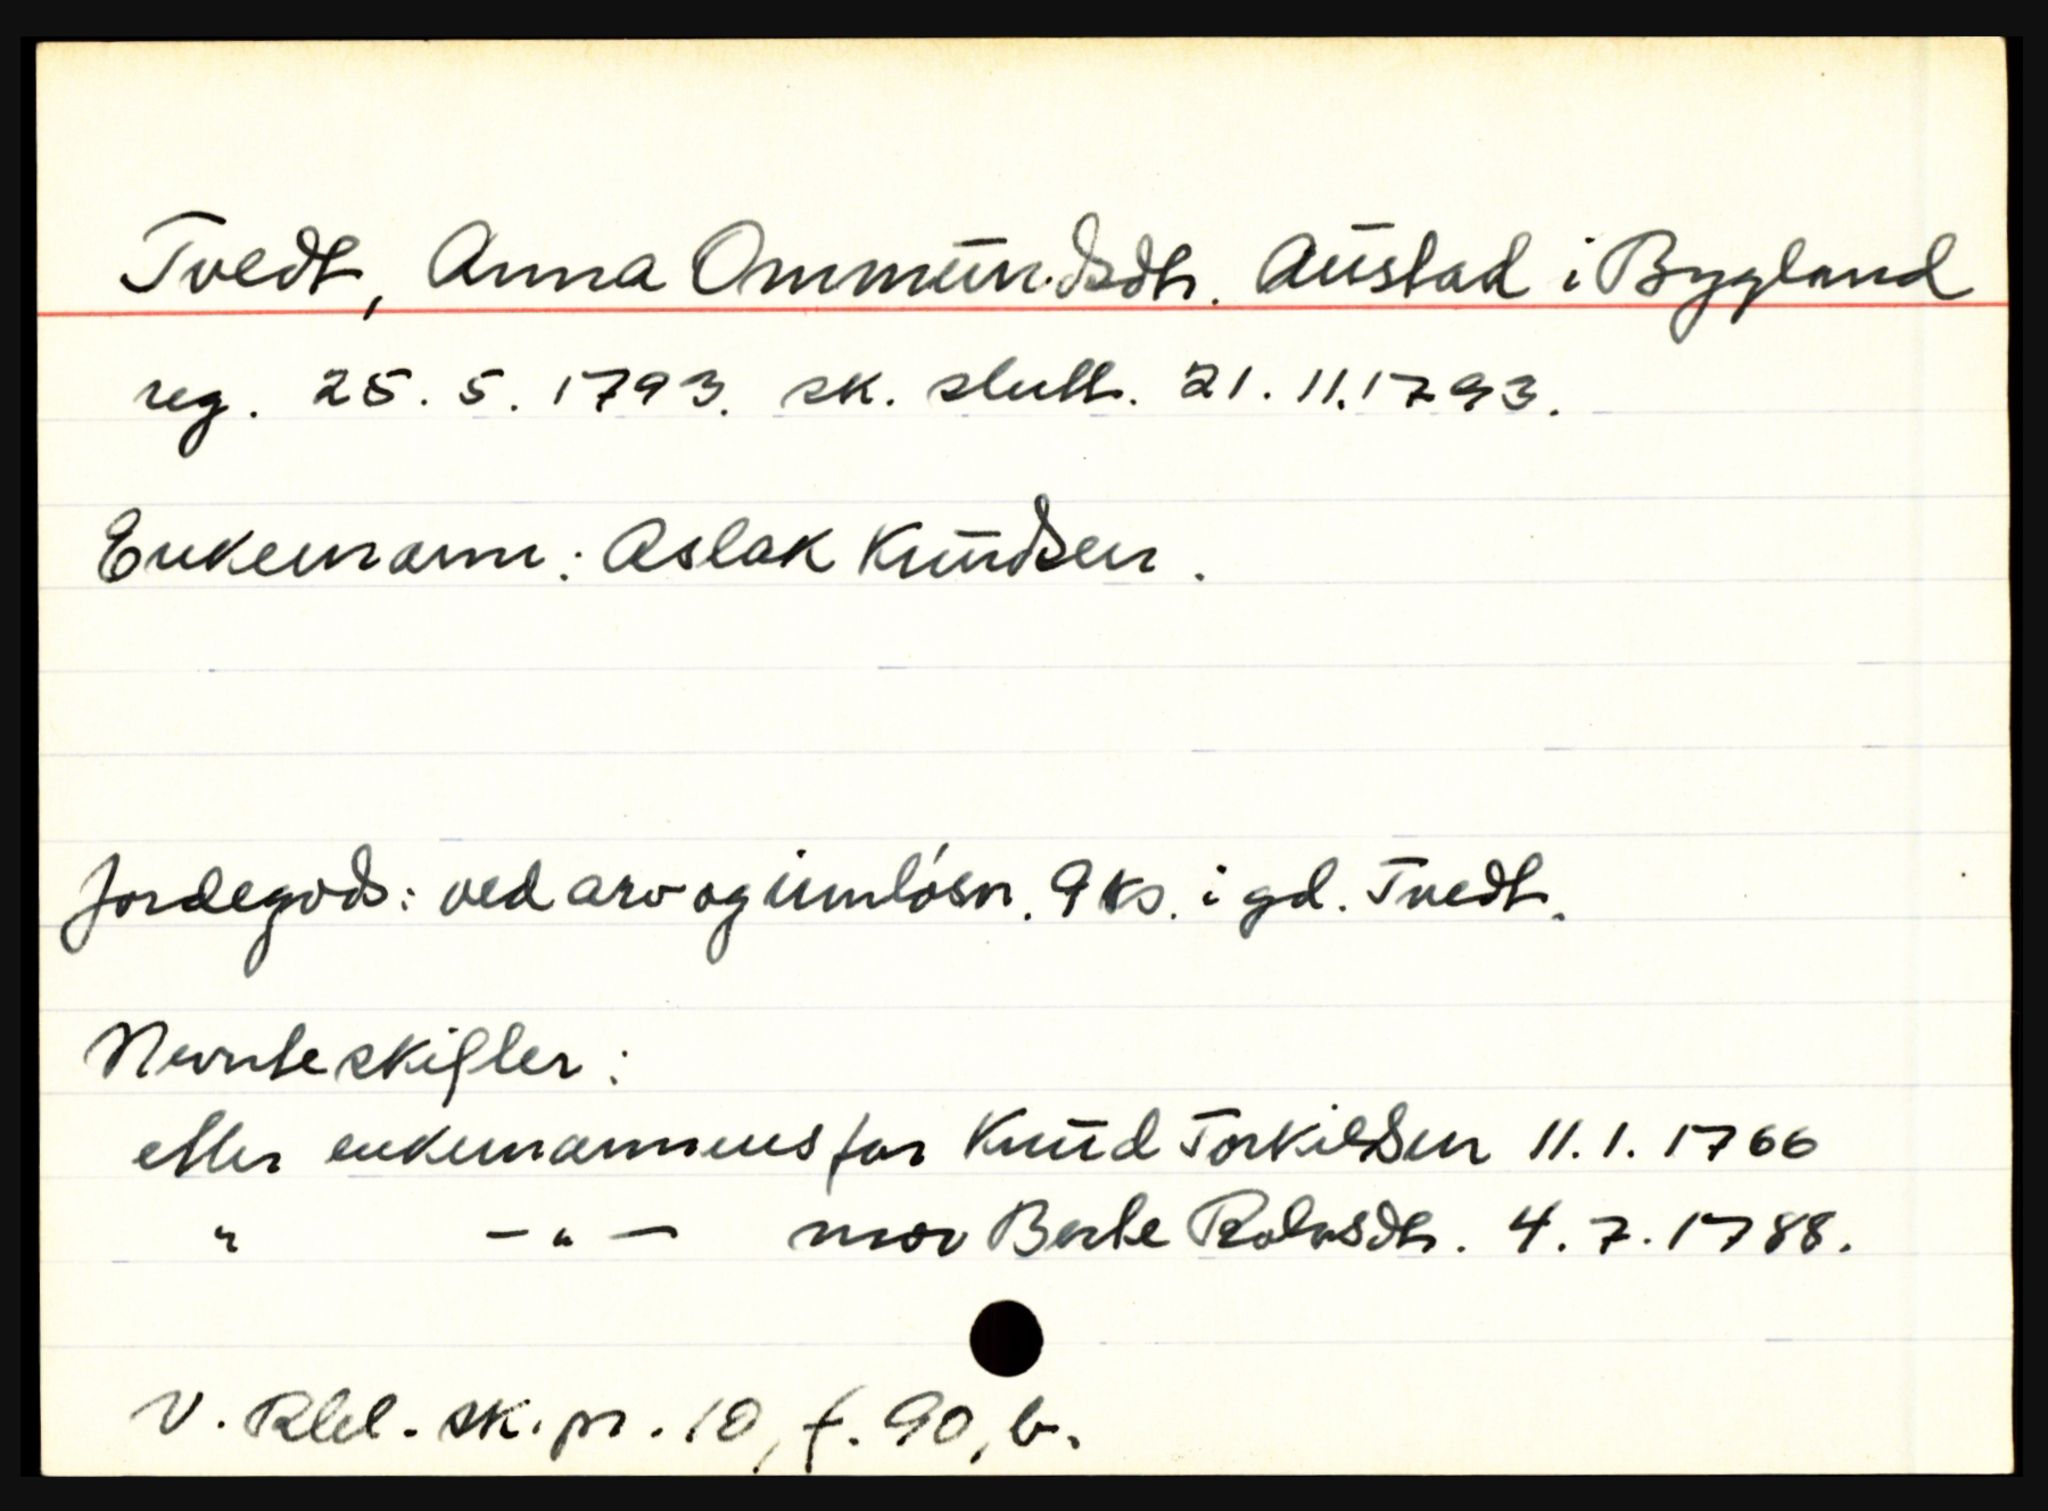 Tvedt, Anna Ommundsdtr. Austad i Bygland
reg. 25.5.1793. sk. slutt. 21.11.1793.
Enkemann: Aslak Knudsen.
Jordegods: ved arv og innløsn. 9 ks. i gd. Tvedt.
Nevnte skifter:
etter enkemannens far Knud Torkildsen 11.1.1766
" - " - mor Berte Rolvsdtr. 4.7.1788.
V. Rbl. sk.pr. 10, f. 90, b.